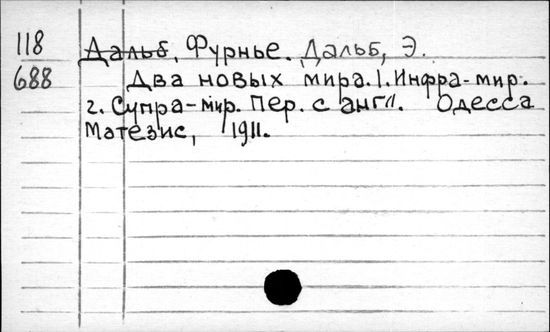 118
688
Дальб, Фурнье. Дальб, Э.
Два новых мира. 1. Инфра-мир.
2. Супра-мир. Пер. с англ. Одесса
Матезис, 1911.